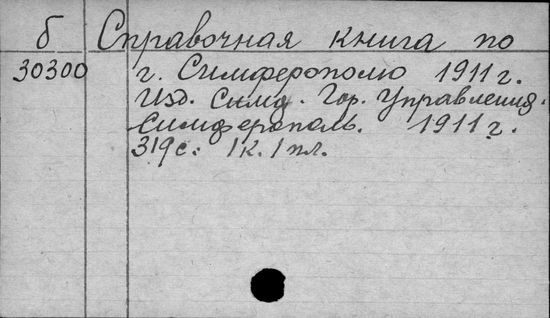 б Справочная книга по
30300 г. Симферополю 1911 г.
Изд. Симф. Гор. Управления.
Симферополь. 1911 г.
319 с. 1 к. 1 пл.